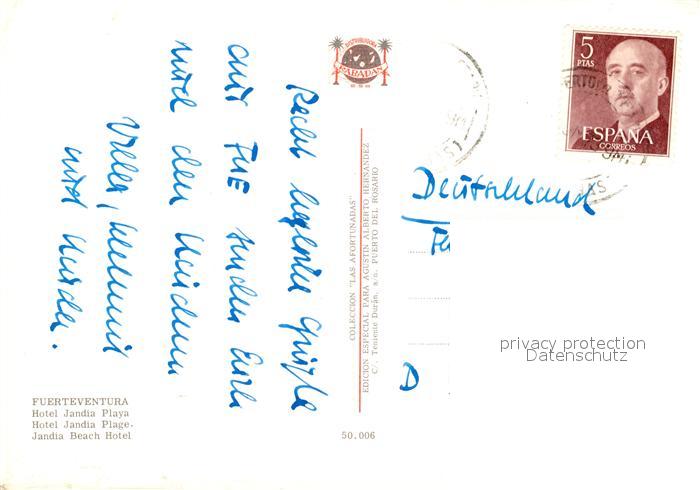 Recht herzliche Grüße
aus FUE senden Euch
und den Kindern
und
FUERTEVENTURA
Hotel Jandia Playa
Hotel Jandia Plage.
Jandia Beach Hotel
DISTRIBUIDORA
COLECCION "LAS AFORTUNADAS"
EDICION ESPECIAL PARA AGUSTIN ALBERTO HERNANDEZ
C/. Teniente Durán, s/n. PUERTO DEL ROSARIO
50.006
5
PTAS
ESPAÑA
CORREOS
Deutschland
D
privacy protection
Datenschutz